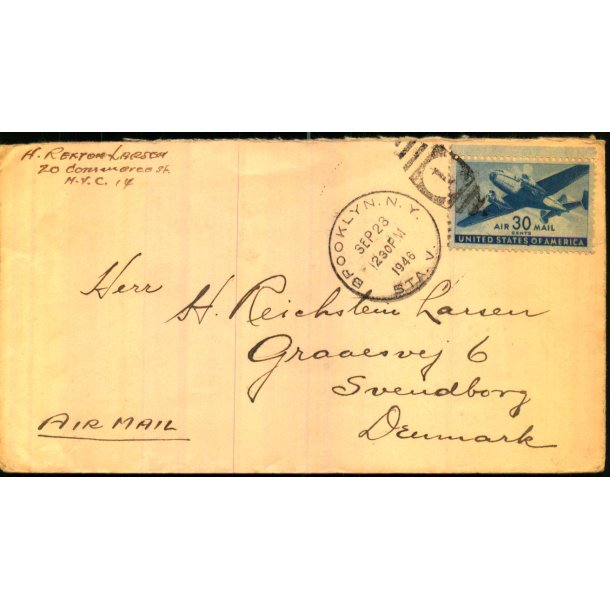 H. Rexton Larsen
20 Commerce St.
N.Y.C. 14
BROOKLYN. N.Y.
SEP 23
12 30 PM
1946
STA. V.
AIR 30 MAIL
CENTS
UNITED STATES OF AMERICA
Herr H. Reichstein Larsen
Graaesvej 6
Svendborg
Denmark
AIR MAIL